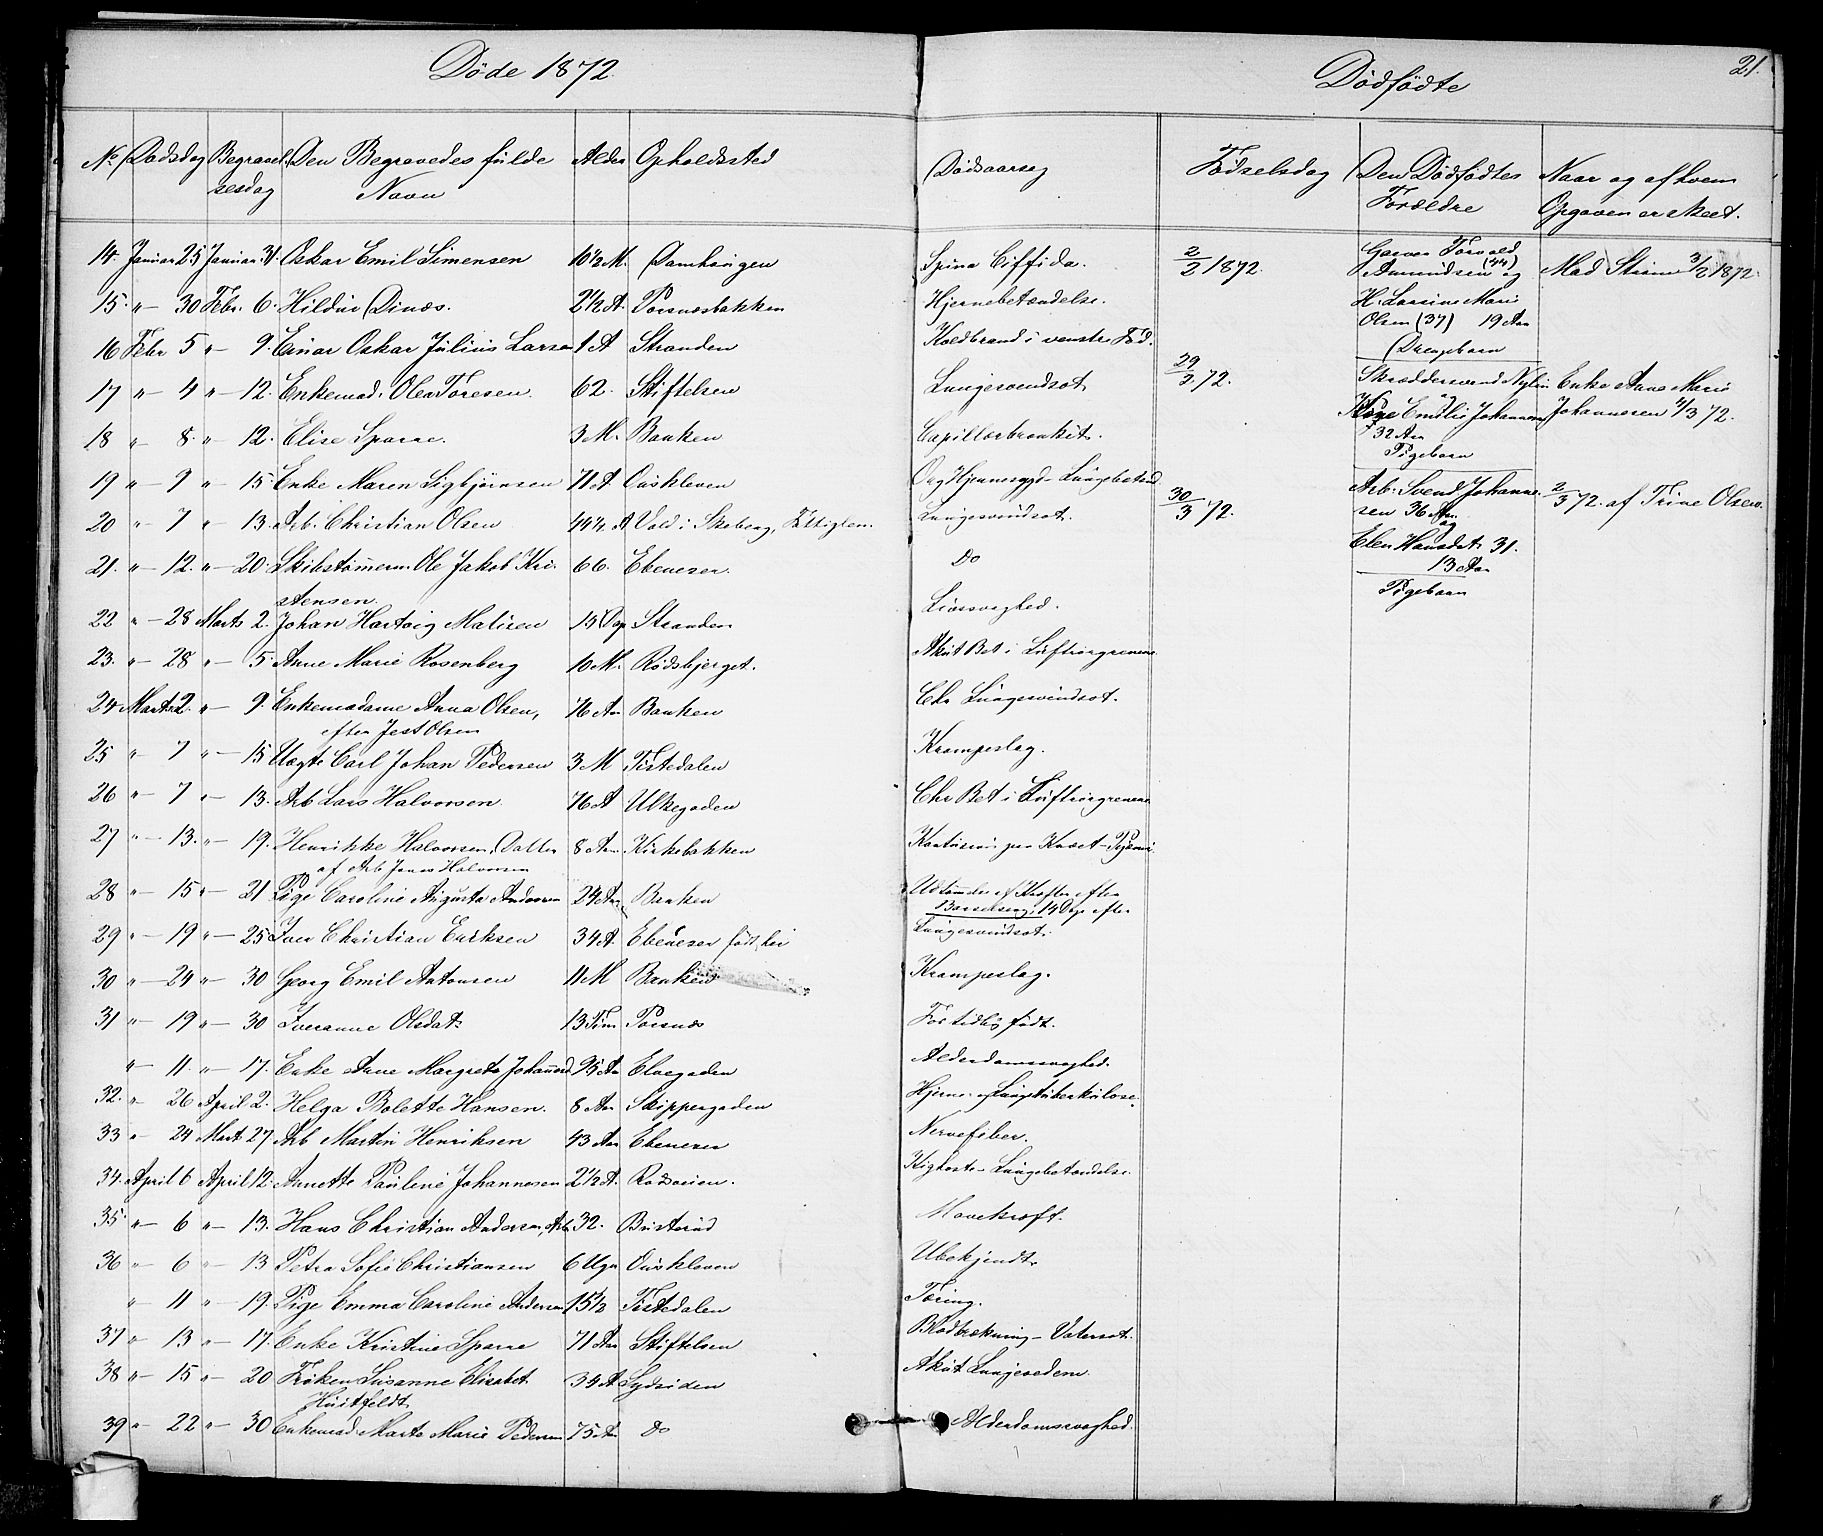 Døde 1872.
Dødfødte
21.
No Dødsdag Begravelsesdag Den Begravedes fulde Navn Alder Opholdssted Dødsaarsag Fødselsdag Den Dødfødtes Forældre Naar og af hvem Opgaven er skeet.
14. Januar 25 Januar 31. Oskar Emil Simensen 10½ M. Damhaugen Spina Biffida.
15. " 30 Febr. 6. Hildur Dinæs. 2½ A. Torsnæsbakken Hjernebetændelse.
16 Febr 5 " 9. Einar Oskar Julius Larsen 1 A Stranden Koldbrand i venstre Fod.
17 " 4 " 12. Enkemad. Olea Toresen 62. Stiftelsen Lungesvindsot
18 " 8. " 12. Elise Sparre. 3 M. Banken Capillærbronkit.
19 " 9 " 15. Enke Maren Sigbjørnsen 71 A Ouskleven
20 " 7 " 13. Arb. Christian Olsen 49½ A Vold i Skeberg, Lungesvindsot.
21. " 12. " 20. Skibstømerm. Ole Jakob Kri-
stensen. 66. Ebeneser. Do
22 " 28 Marts 2. Johan Hartvig Matisen 15 Dag Stranden Livssvaghed.
23. " 28 " 5. Anne Marie Rosenberg 10 M. Rødsbjerget. Akut Bet i Luftrørgrenene
24 Marts 2. " 9. Enkemadame Anna Olsen,
efter Jest Olsen 76 Aar Banken Chr Lungesvindsot.
25 " 7 " 15 Uægte Carl Johan Pedersen 3 M Tistedalen Krampeslag.
26 " 7 " 13. Arb Lars Halvorsen. 76 A Ulkegaden Chr Bet i Luftrørgrenene
27 " 13. " 19. Henrikke Halvorsen, Datter
af Arb Jonas Halvorsen 8 Aar Kirkebakken
28 " 15 " 21 Pige Caroline Augusta Andersen 24 Aar Banken af Kræfter efter
Barselseng, 14 Dage efter
29 " 19 " 25 Iver Christian Eriksen 34 A. Ebeneser født her Lungesvindsot.
30 " 24 " 30 Georg Emil Antonsen 11 M Banken Krampeslag.
31 " 19 " 30 Iveranne Olsdat. 13 Tim Torsnæs For tidlig født.
" 11. " 17. Enke Anne Margrete Johannesd 95 Aar Elvegaden Alderdomssvaghed.
32. " 26 April 2. Helga Bolette Hansen. 8 Aar Skippergaden Hjerne- og Lungetuberkulose.
33 " 24 Mart 27 Arb Martin Henriksen 43 Aar Ebeneser Nervefeber.
34. April 6 April 12. Annette Pauline Johannesen 2½ A. Rødsveien. Kighoste- Lungebetændelse.
35 " 6 " 13. Hans Christian Andersen, Arb 32. Busterud Mavekræft.
36 " 6 " 13 Petra Sofie Christiansen 6 Uger Ouskleven Ubekjendt.
" 11 " 19. Pige Emma Caroline Andersen 15½ Tistedalen Tæring.
37 " 13 " 17. Enke Kristine Sparre 71 Aar Stiftelsen Blodbrækning- Vatersot.
38 " 15 " 20 Frøken Susanne Elisabet
Huitfeldt 34 A Sydsiden Akut Lungeødem.
39 " 22 " 30 Enkemad. Marte Marie Pedersen 75 Aar Do Alderdomssvaghed.
2/3 1872. Garver Torvald
Amundsen (44) og
H. Larsine Marie
Olsen (37) 19 Aar
Drengebarn Mad Strøm 3/3 1872.
29/3 72. Skræddersvend Nylin
og
Emilie Johannesen
32 Aar
Pigebarn Enke Anne Marie
Johannesen 1/3 72.
30/3 72. Arb. Svend Johanne-
sen 36 Aar
og
Elen Hansdat 31.
13 Aar
Pigebarn 2/3 72. af Trine Olsen.